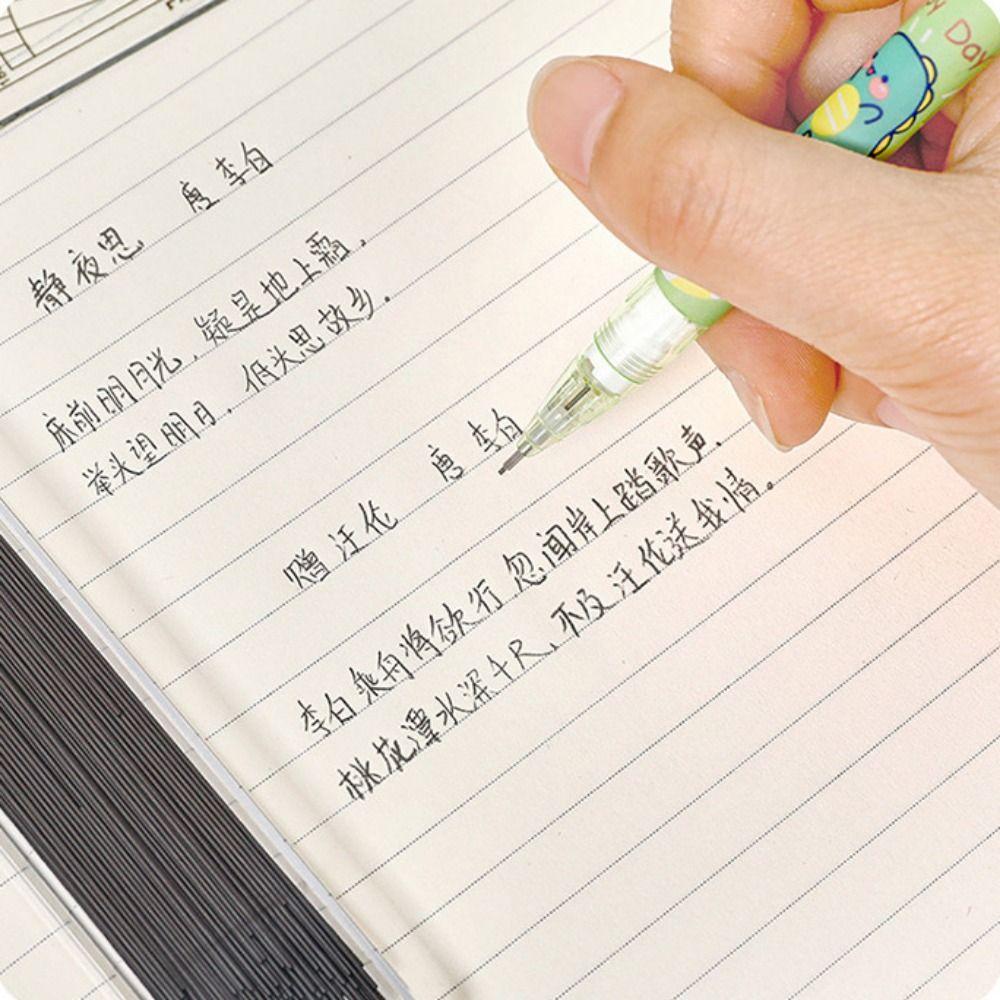 静夜思 唐 李白
床前明月光，疑是地上霜，
举头望明月，低头思故乡。
赠汪伦 唐 李白
李白乘舟将欲行 忽闻岸上踏歌声，
桃花潭水深千尺，不及汪伦送我情。
Day